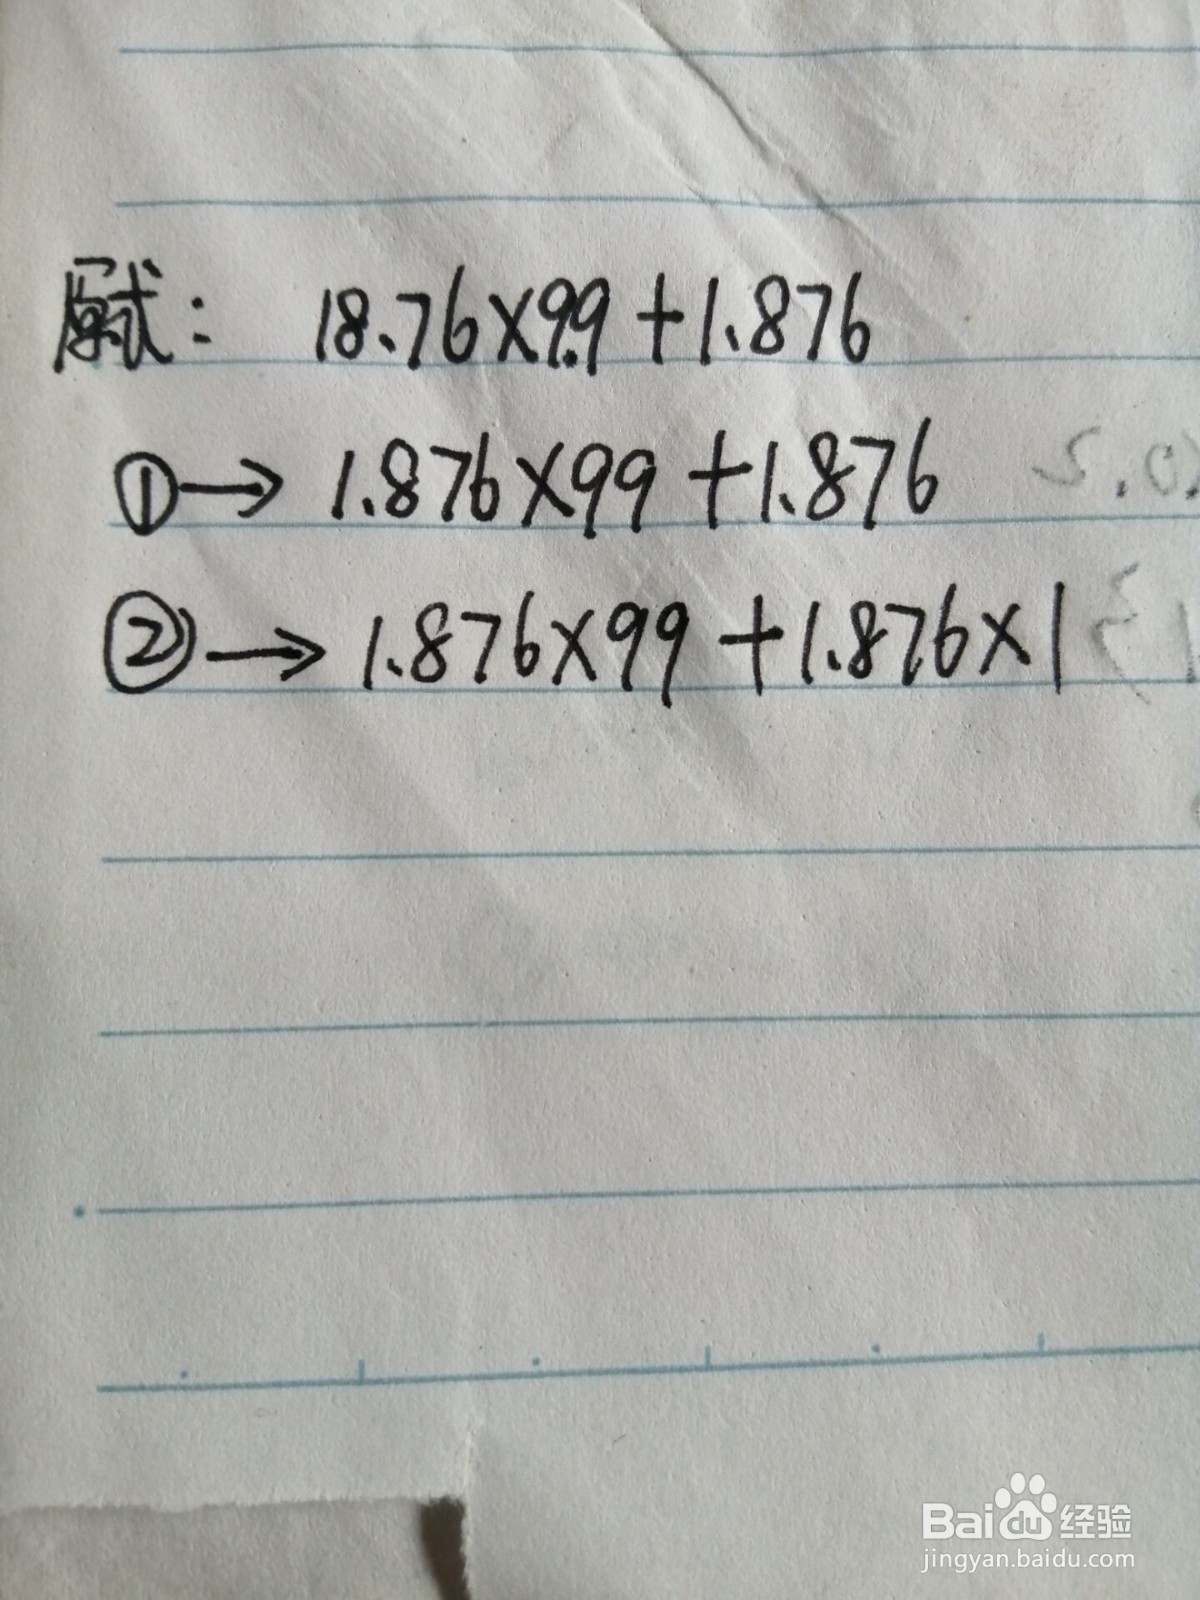 原式: 18.76×9.9+1.876
①→ 1.876×99+1.876
②→ 1.876×99+1.876×1
Baidu经验
jingyan.baidu.com